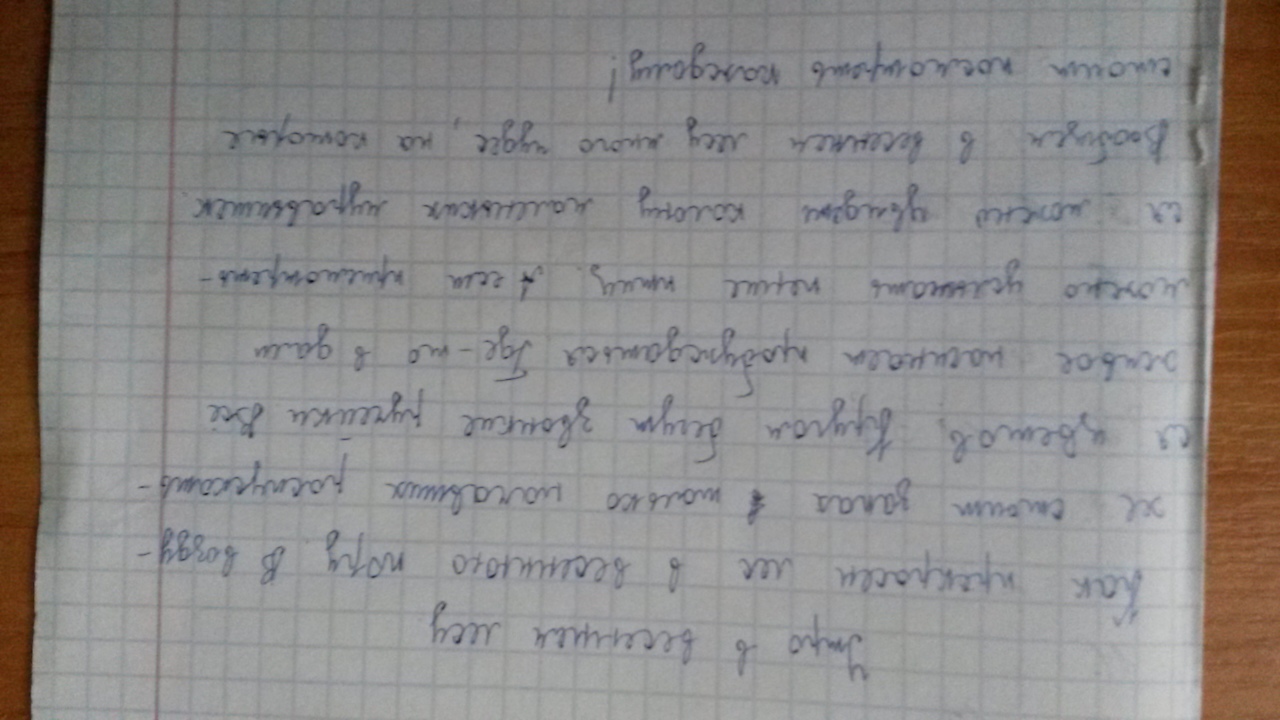 Утро в весеннем лесу
Как прекрасен лес в весеннюю пору. В возду-
хе стоит запах только начавших распускать-
ся цветов. Кругом бегут звонкие ручейки Всё
живое начинает пробуждаться Где-то в дали
можно услышать пение птиц. А если присмотреть-
ся можно увидеть колону маленьких муравьишек.
Вообщем в весеннем лесу много чудес, на которые
стоит посмотреть каждому!